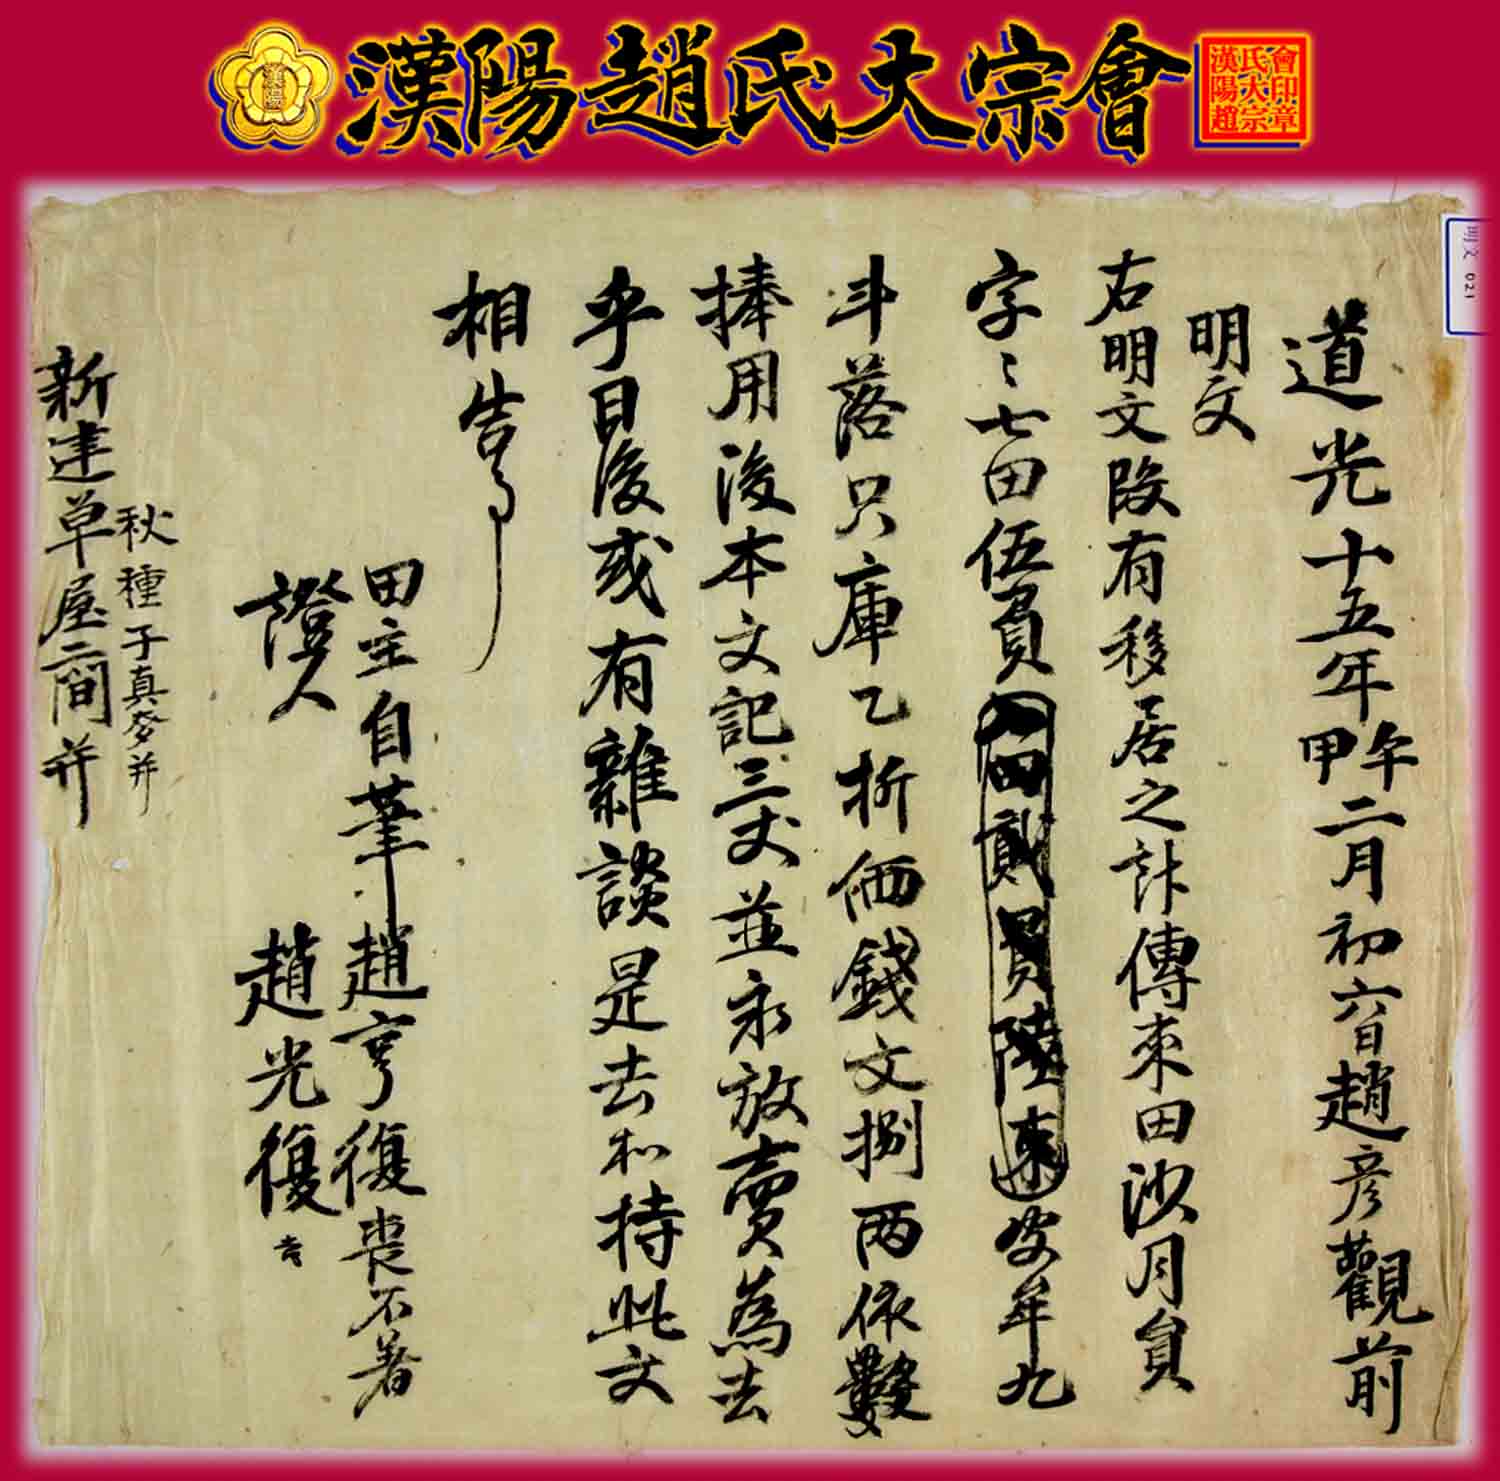 漢陽趙氏大宗會
漢陽趙氏大宗會印章
明文 021
道光十五年甲午二月初六日趙彦觀前
明文
右明文段有移居之計傳来田沙月員
字〻七田伍員田貳員陸束牟九
斗落只庫乙折価錢文捌兩依數
捧用後本文記三丈並永放賣為去
乎日後或有雜談是去和持此文
相告事
田主自筆趙亨復喪不著
證人 趙光復
秋種子真麥并
新建草屋二間并